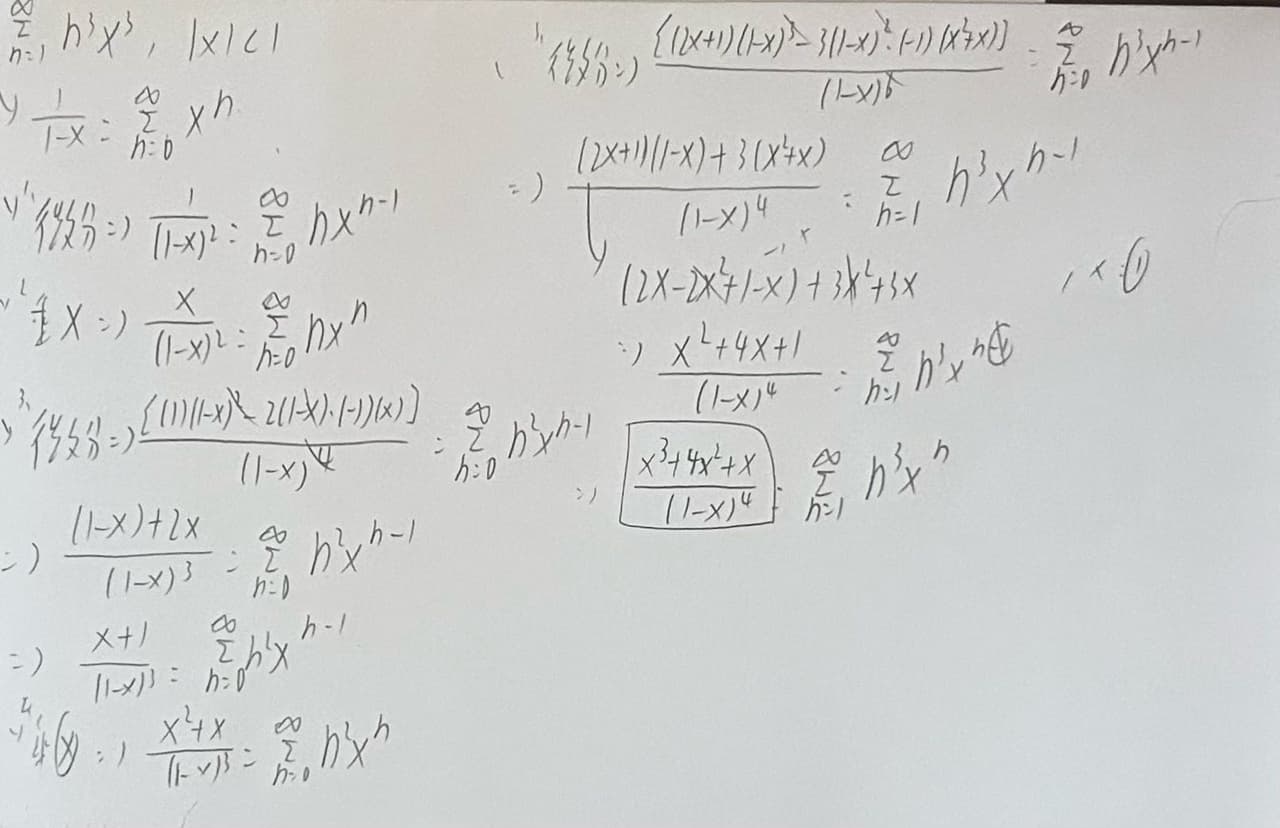 ∞Σn=1 n³x³, |x|<1
1/(1-x) = ∞Σn=0 xⁿ
1. 微分 => 1/(1-x)² = ∞Σn=0 nxⁿ⁻¹
2. 乘X => x/(1-x)² = ∞Σn=0 nxⁿ
3. 微分 => [(1)(1-x)² - 2(1-x)·(-1)(x)]/(1-x)⁴ = ∞Σn=0 n²xⁿ⁻¹
=> ((1-x)+2x)/(1-x)³ = ∞Σn=0 n²xⁿ⁻¹
=> (x+1)/(1-x)³ = ∞Σn=0 n²xⁿ⁻¹
4. (x) => (x²+x)/(1-x)³ = ∞Σn=0 n²xⁿ
微分 => [(2x+1)(1-x)³ - 3(1-x)²·(-1)(x²+x)]/(1-x)⁶ = ∞Σn=0 n³xⁿ⁻¹
=> ((2x+1)(1-x)+3(x²+x))/(1-x)⁴ = ∞Σn=1 n³xⁿ⁻¹
(2x-2x²+1-x)+3x²+3x
=> (x²+4x+1)/(1-x)⁴ = ∞Σn=1 n³xⁿ⁻¹
=> (x³+4x²+x)/(1-x)⁴ = ∞Σn=1 n³xⁿ